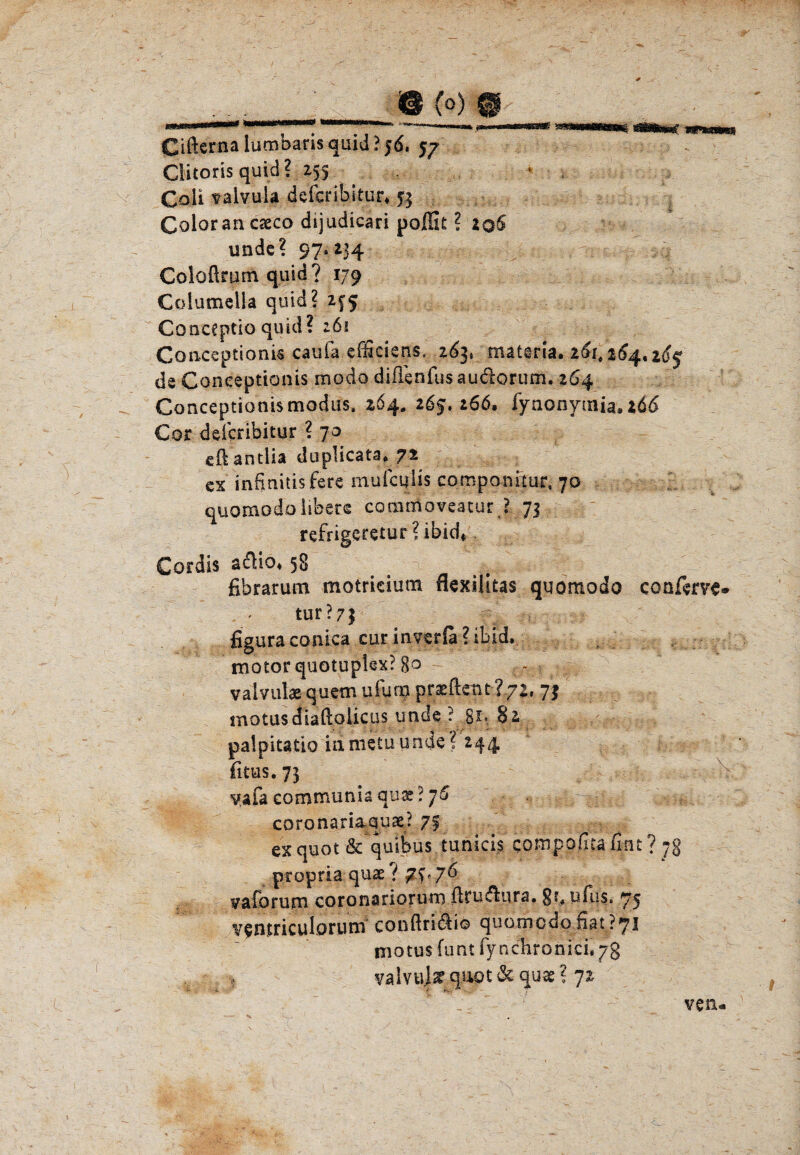 (o)
Ciſterna lumbaris quid? 56. 57
Clitoris quid? 255
Coli valvula deſcribitur. 53
Color an cæco dijudicari poſſit? 206
unde? 97. 234
Coloſtrum quid? 179
Columella quid? 255
Conceptio quid? 261
Conceptionis cauſa efficiens. 263. materia. 261. 264. 265
de Conceptionis modo diſſenſus auctorum. 264
Conceptionis modus. 264. 265. 266. ſynonymia. 266
Cor deſcribitur? 70
eſt antlia duplicata. 72
ex infinitis fere muſculis componitur. 70
quomodo libere commoveatur? 73
refrigeretur? ibid.
Cordis actio. 58
fibrarum motricium flexilitas quomodo conſerve-
tur? 73
figura conica cur inverſa? ibid.
motor quotuplex? 80
valvulæ quem uſum præſtent? 72. 73
motus diaſtolicus unde? 81. 82
palpitatio in metu unde? 244
ſitus. 73
vaſa communia quæ? 76
coronaria quæ? 75
ex quot & quibus tunicis compoſita ſint? 78
propria quæ? 75. 76
vaſorum coronariorum ſtructura. 81. uſus. 75
ventriculorum conſtrictio quomodo fiat? 71
motus ſunt ſynchronici. 78
valvulæ quot & quæ? 72
ven-